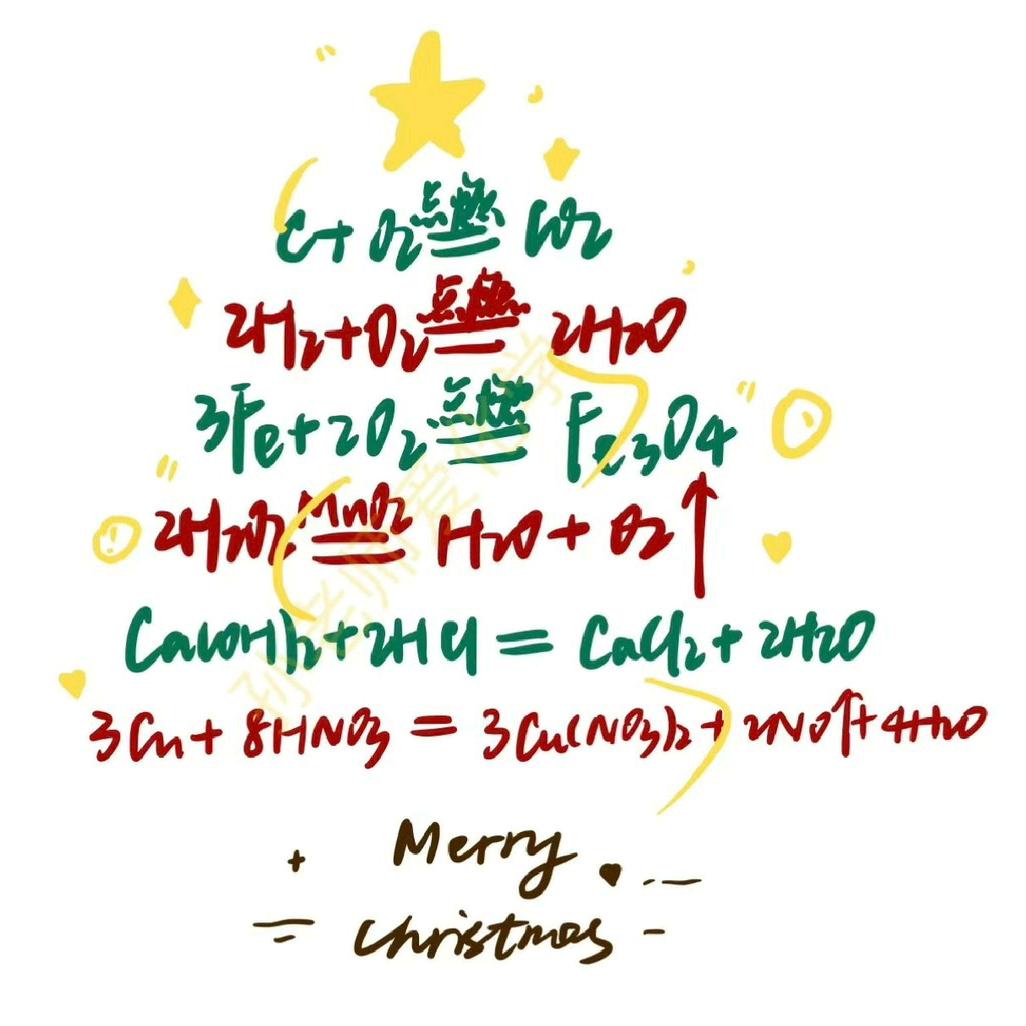 C+O₂ 点燃 CO₂
2H₂+O₂ 点燃 2H₂O
3Fe+2O₂ 点燃 Fe₃O₄
2H₂O₂ MnO₂ H₂O+O₂↑
Ca(OH)₂+2HCl=CaCl₂+2H₂O
3Cu+8HNO₃=3Cu(NO₃)₂+2NO↑+4H₂O
Merry
Christmas
孙老师爱化学